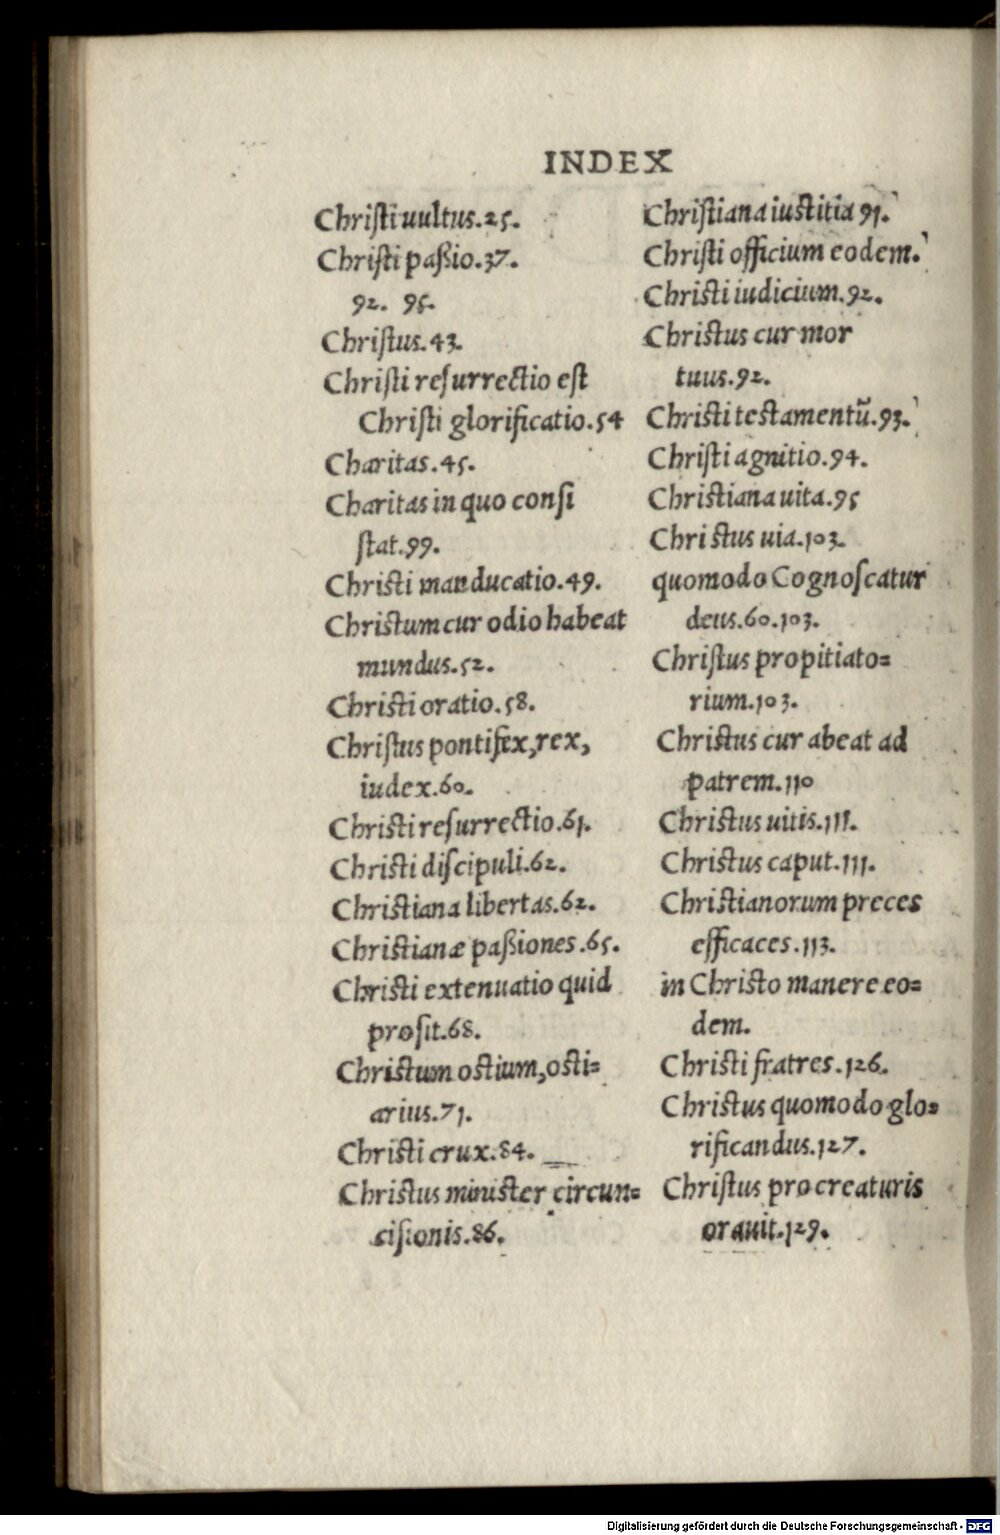 INDEX
Christi uultus.25.
Christi paßio.37.
92. 95.
Christus.43.
Christi resurrectio est
Christi glorificatio.54
Charitas.45.
Charitas in quo consi
stat.99.
Christi manducatio.49.
Christum cur odio habeat
mundus.52.
Christi oratio.58.
Christus pontifex,rex,
iudex.60.
Christi resurrectio.61.
Christi discipuli.62.
Christiana libertas.62.
Christianæ paßiones.65.
Christi extenuatio quid
prosit.68.
Christum ostium,osti=
arius.71.
Christi crux.84.
Christus minister circun=
cisionis.86.
Christiana iustitia 91.
Christi officium eodem.
Christi iudicium.92.
Christus cur mor
tuus.92.
Christi testamentũ.93.
Christi agnitio.94.
Christiana uita.95
Christus uia.103.
quomodo Cognoscatur
deus.60.103.
Christus propitiato=
rium.103.
Christus cur abeat ad
patrem.110
Christus uitis.111.
Christus caput.111.
Christianorum preces
efficaces.113.
in Christo manere eo=
dem.
Christi fratres.126.
Christus quomodo glo=
rificandus.127.
Christus pro creaturis
orauit.129.
Digitalisierung gefördert durch die Deutsche Forschungsgemeinschaft - DFG